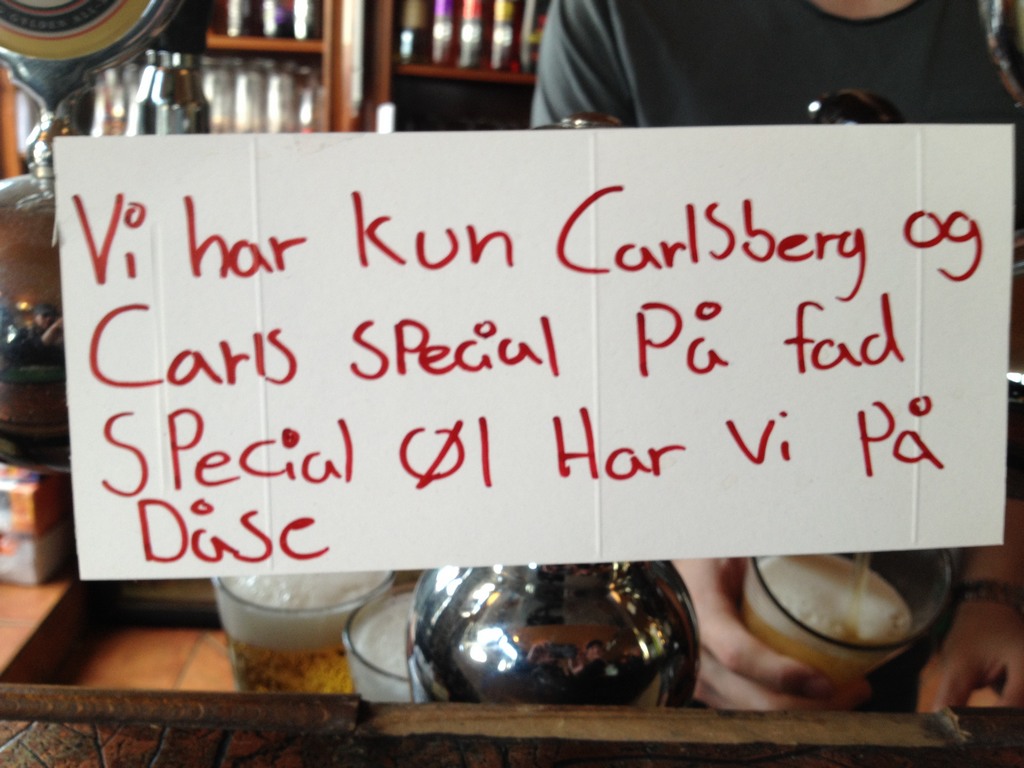 Vi har kun Carlsberg og
Carls special På fad
Special Øl Har Vi På
Dåse